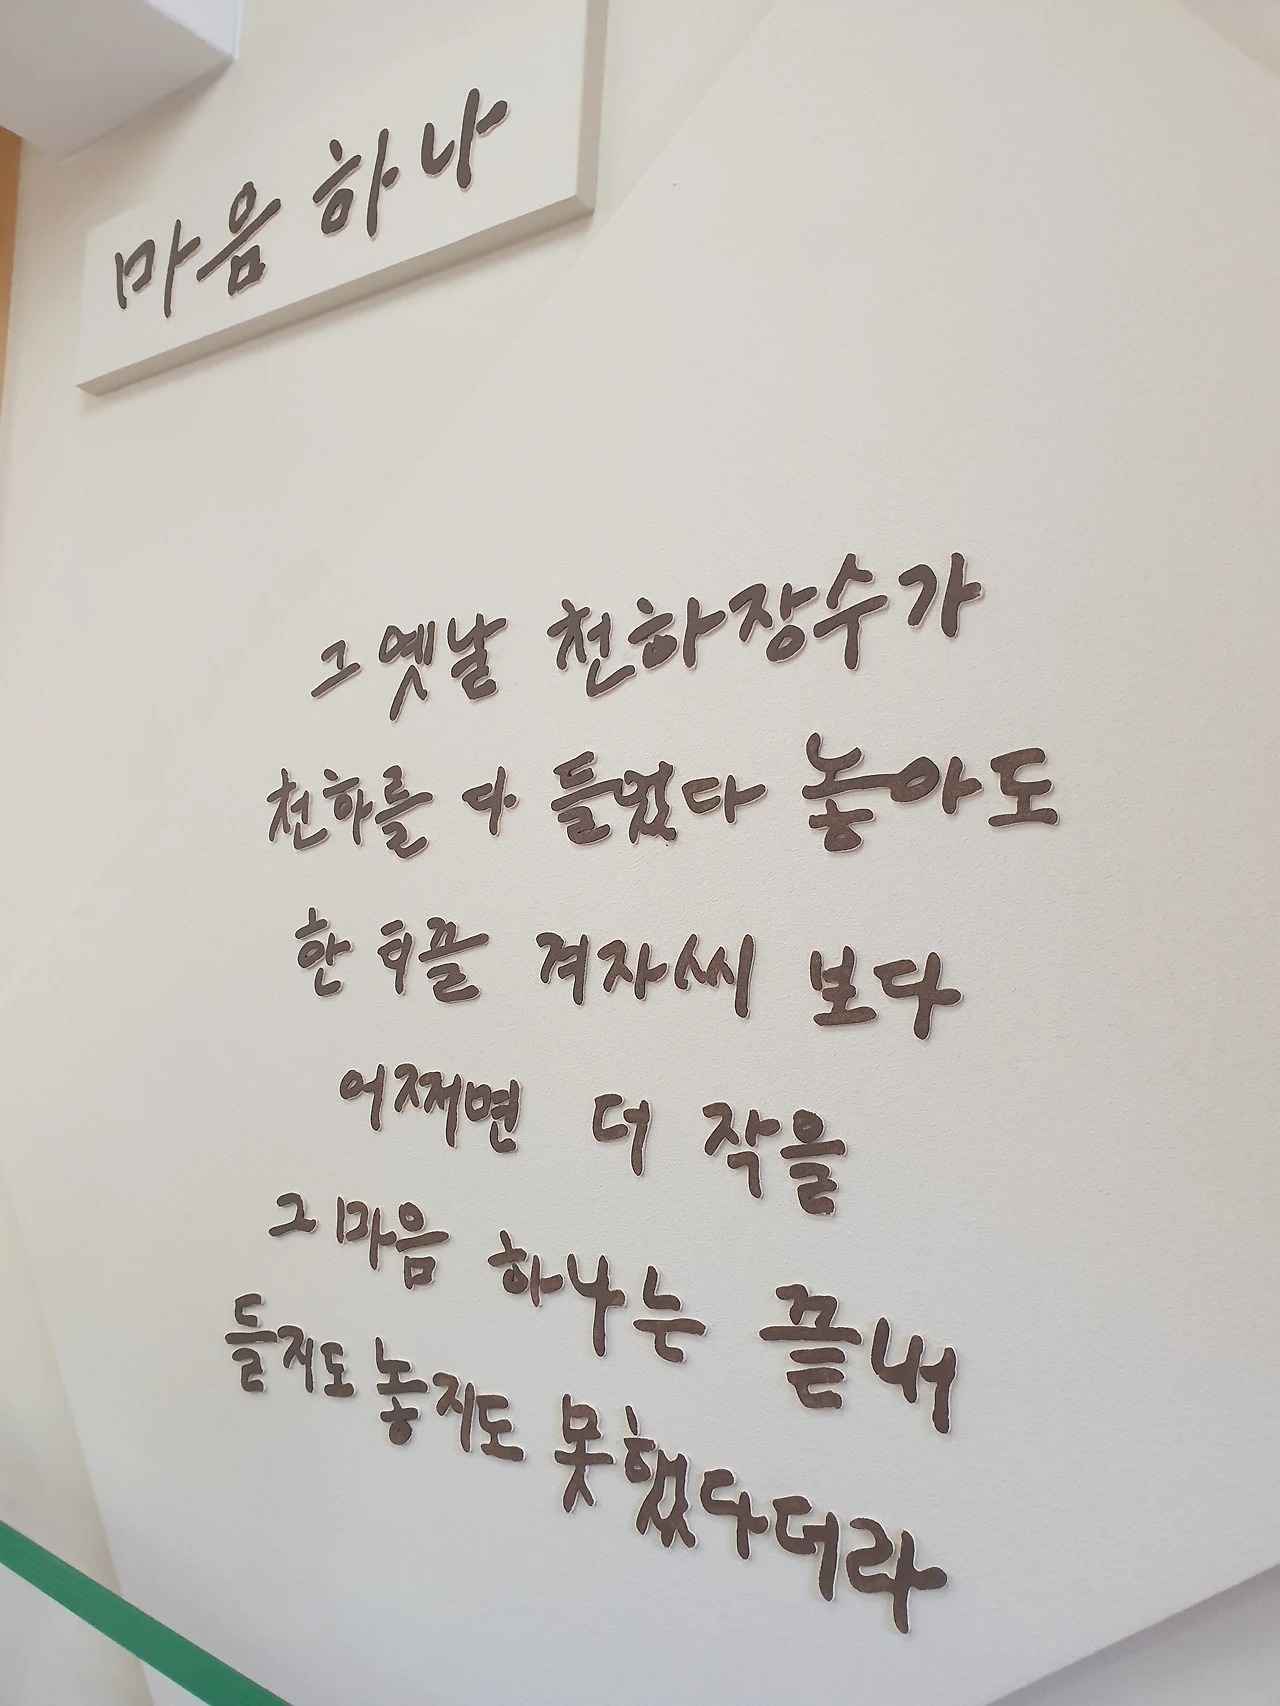 마음 하나
그 옛날 천하장수가
천하를 다 들었다 놓아도
한 티끌 겨자씨 보다
어쩌면 더 작을
그 마음 하나는 끝내
들지도 놓지도 못했다더라